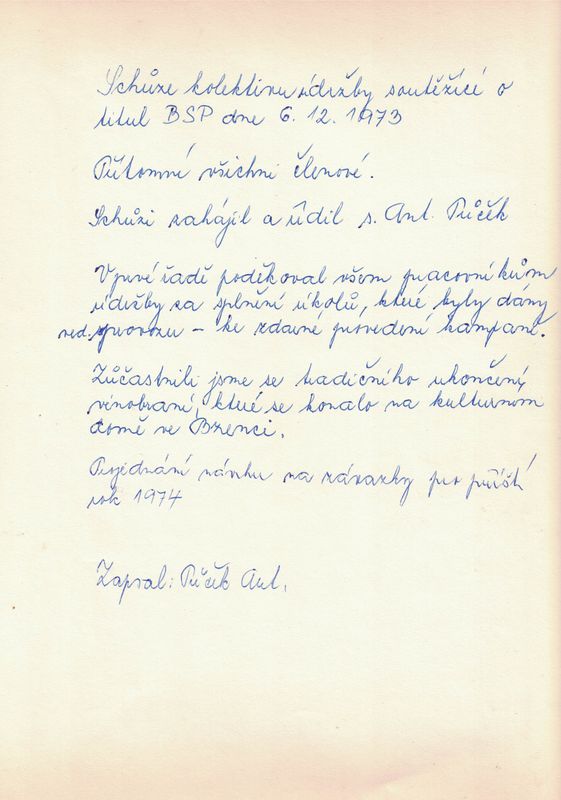 Schůze kolektivu údržby soutěžící o
titul BSP dne 6. 12. 1973
Přítomni všichni členové.
Schůzi zahájil a řídil s. Ant. Průček
V prvé řadě poděkoval všem pracovníkům
údržby za splnění úkolů, které byly dány
ved. provozu – ke zdárné provedení kampaně.
Zúčastnili jsme se tradičního ukončený
vinobraní, které se konalo na kulturnom
domě ve Bzenci.
Projednání návrhu na závazky pro příští
rok 1974
Zapsal: Ant.